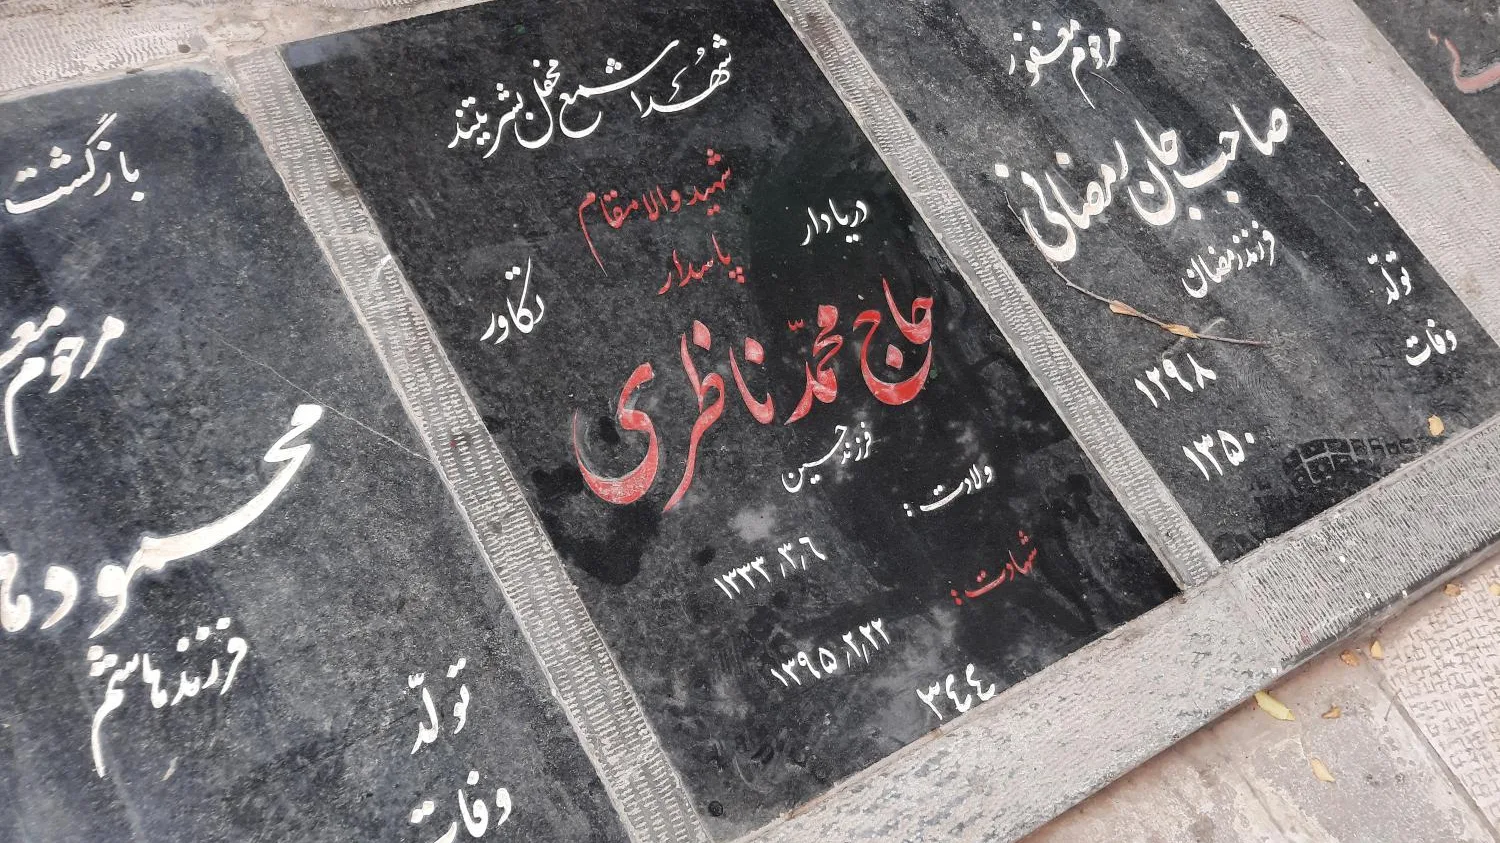 شهدا شمع محفل بشریتند
شهید والامقام
دریادار پاسدار تکاور
حاج محمّد ناظری
فرزند حسین
ولادت : ۱۳۳۳٫۳٫۶
شهادت : ۱۳۹۵٫۲٫۲۲
۳۴۴
مرحوم مغفور
صاحب جان رمضانی
فرزند رمضان
تولّد ۱۲۹۸
وفات ۱۳۵۰
بازگشت
مرحوم
محمود
فرزند هاشم
تولّد
وفات